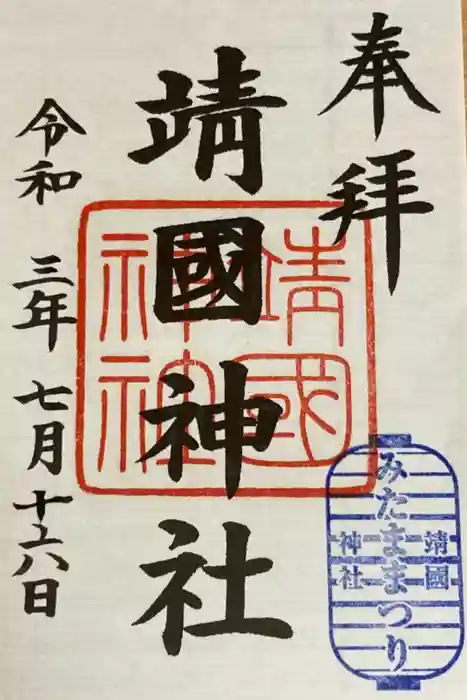 奉拝
靖國神社
令和 三年 七月 十六日
靖國
神社
みたままつり
靖國
神社